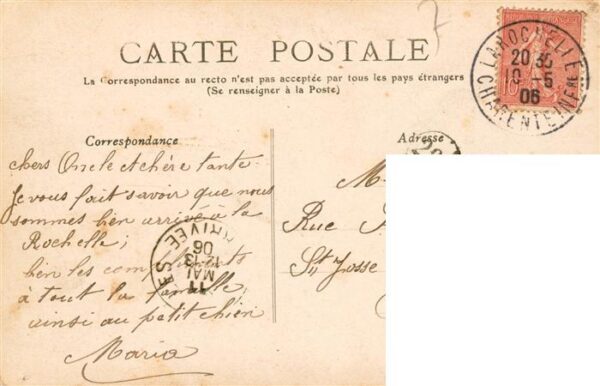 CARTE POSTALE
La Correspondance au recto n'est pas acceptée par tous les pays étrangers
(Se renseigner à la Poste)
LA ROCHELLE
20 35
10 -5
06
CHARENTE INFRE
10
Correspondance
Adresse
chers Oncle et chère tante
Je vous fait savoir que nous
sommes bien arrivé à la
Rochelle;
bien les compliments
à tout la famille
ainsi au petit chien
Maria
M
Rue
St Josse
ARRIVEE
11
MAI
12-13
06